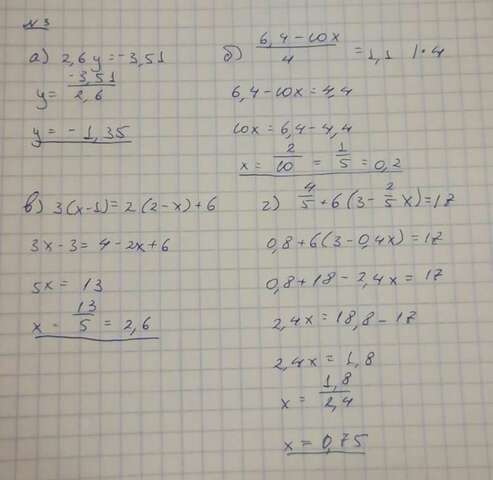 №3
а) 2,6y = -3,51
y = -3,51/2,6
y = -1,35
б) (6,4 - 10x)/4 = 1,1 | · 4
6,4 - 10x = 4,4
10x = 6,4 - 4,4
x = 2/10 = 1/5 = 0,2
в) 3(x-1) = 2(2-x)+6
3x - 3 = 4 - 2x + 6
5x = 13
x - 13/5 = 2,6
г) 4/5 + 6(3 - 2/5 x) = 17
0,8 + 6(3 - 0,4x) = 17
0,8 + 18 - 2,4x = 17
2,4x = 18,8 - 17
2,4x = 1,8
x = 1,8/2,4
x = 0,75